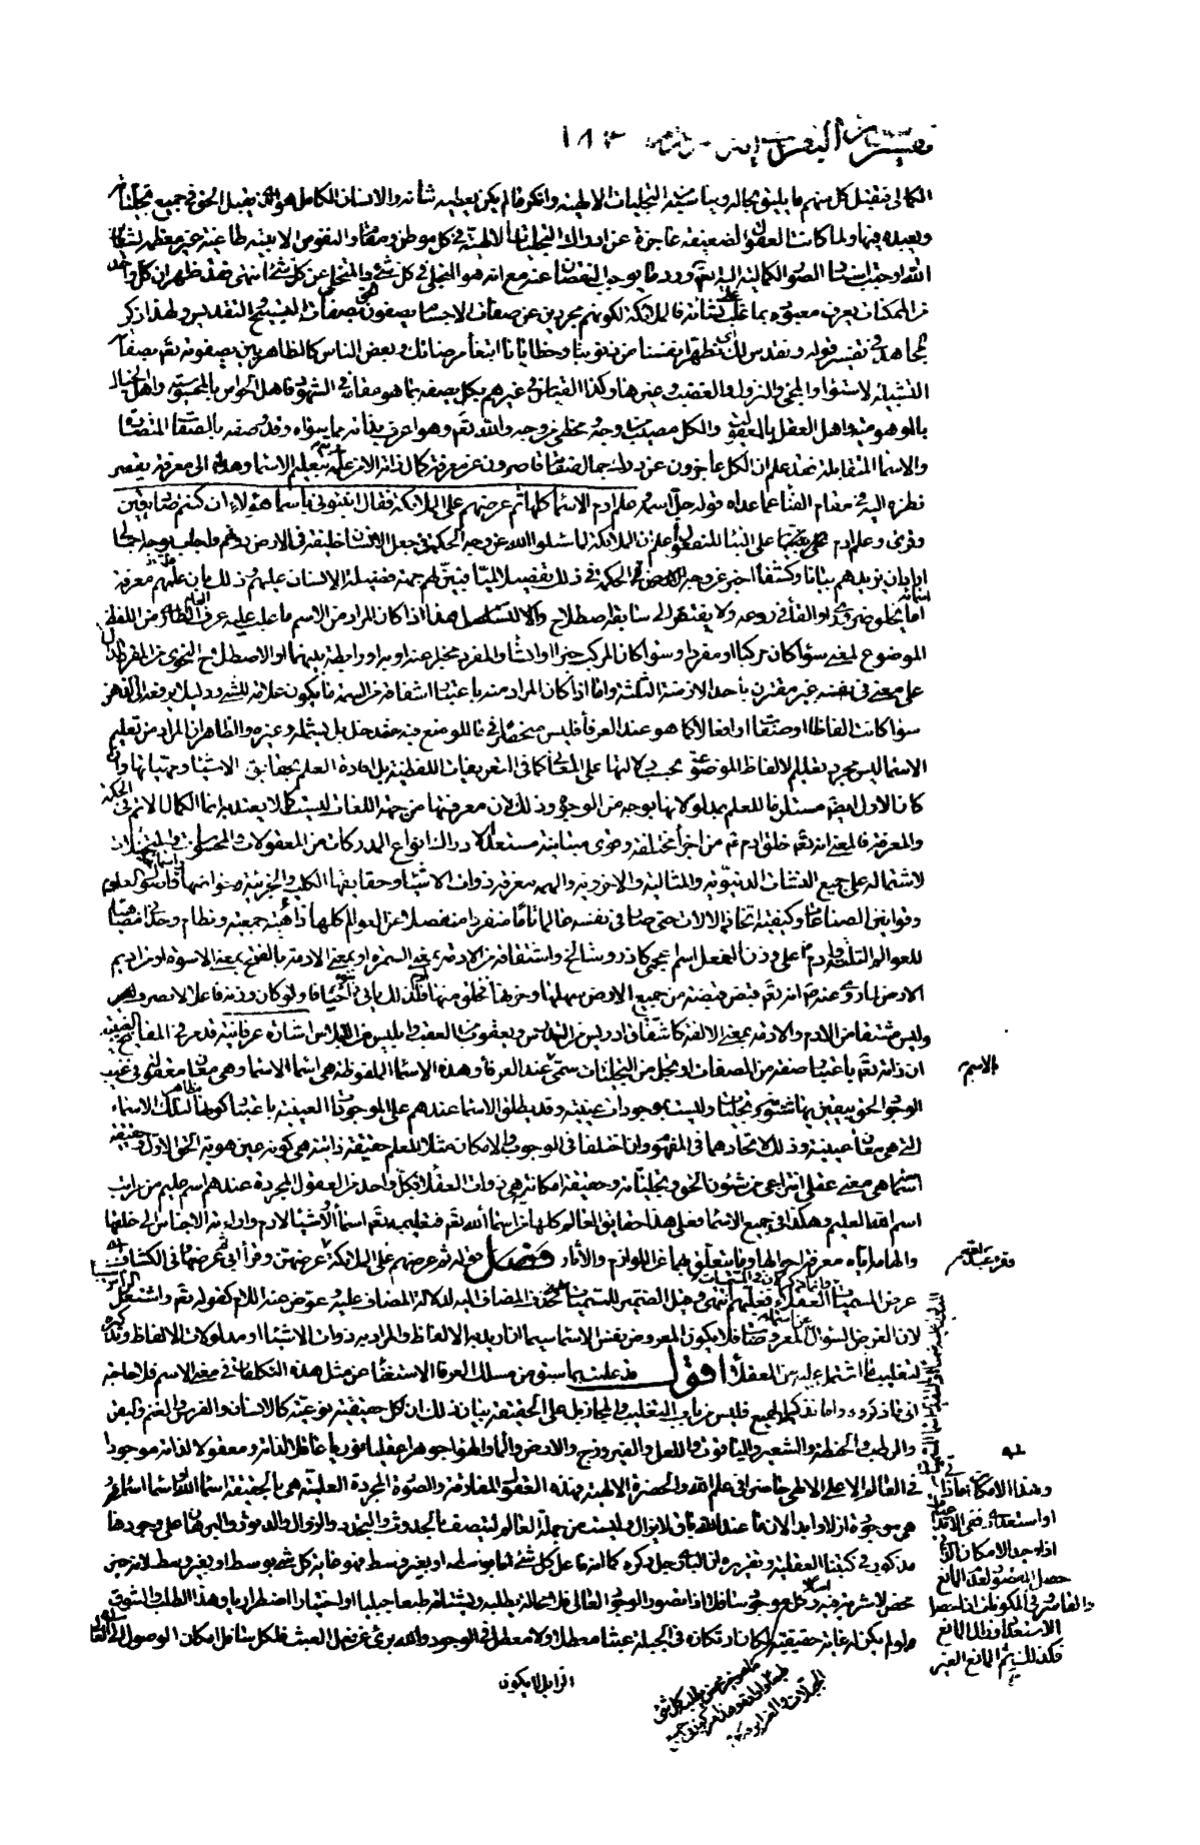 الكمالى فيقبل كل منهم ما يليق بحاله ويناسبه من التجليات الالهية وانكر ما لم يكن يعطيه شأنه والانسان الكامل هو الذى يقبل الحق فى جميع تجلياته
ويعبده فيها ولما كانت العقول الضعيفة عاجزة عن ادراك التجليات الالهية فى كل موطن ومقام والنفوس الابية طاغية غير معظمة لشعائر
الله اوجبت اسناد الصور الكمالية اليه تعالى ورد ما يوجب النقصان عنه مع انه هو المتجلى فى كل شئ والمتخلى عن كل شئ انتهى فقد ظهر ان كل واحد
من الممكنات يعرف معبوده بما غلب على نشأته فالملائكة لكونهم مجردين عن صفات الاجسام يصفونه بصفات التسبيح والتقديس ولهذا ذكر
مجاهد فى تفسير قوله ونقدس لك اى نطهر انفسنا من ذنوبنا وخطايانا ابتغاء مرضاتك وبعض الناس كالظاهريين يصفونه تعالى بصفات
التشبيه كالاستواء والمجئ والنزول والغضب وغيرها وكذا القياس فى غيرهم
بالموهوم واهل العقل بالمعقول والكل مصيب من وجه مخطئ من وجه والله تعالى وهو اعرف بذاته مما سواه وقد وصف بالصفات المتضادة
والاسماء المتقابلة فعلم ان الكل عاجزون عن درك جمال صفاته قاصرون عن معرفة كمال ذاته الا من علمه الله بتعليم الاسماء وهداه الى معرفته بقصر
نظره اليه فى مقام الفناء عما عداه قوله جل اسمه وعلم ادم الاسماء كلها ثم عرضهم على الملائكة فقال انبئونى باسماء هؤلاء ان كنتم صادقين
وقرئ وعلم ادم على البناء للمفعول اعلم ان الملائكة لما سئلوا الله عن وجه الحكمة فى جعل الانسان خليفة فى الارض دونهم واجاب بوجه اجمالى
اراد ان يزيدهم بيانا وكشفا اخبر عن وجه الغرض والحكمة فى ذلك تفصيلا مبينا فبين لهم جهة فضيلة الانسان عليهم وذلك بان علمهم معرفة
اما بخلق ضرورى او القاء فى روعه ولا يفتقر الى سابقة اصطلاح والا لتسلسل هذا اذا كان المراد من الاسم ما غلب عليه عرف من اللفظ
الموضوع لمعنى سواء كان مركبا او مفردا وسواء كان المركب خبرا او انشاء والمفرد مخبرا عنه او خبرا او رابطة بينهما او الاصطلاح النحوى من المفرد الدال
على معنى فى نفسه غير مقترن باحد الازمنة الثلثة واما اذا كان المراد منه باعتبار اشتقاقه من السمة ما يكون علامة للشئ ودليلا يرفعه الى الذهن
سواء كانت الفاظا او صفات او افعالا كما هو عند العرفاء فليس منحصرا فى ما للوضع فيه مدخل بل يشمله وغيره والظاهر ان المراد من تعليم
الاسماء ليس مجرد تعليم الالفاظ الموضوعة بحسب دلالتها على المعانى كما فى التعريفات اللفظية بل افادة العلم بحقايق الاشياء ومهياتها وان
كان الاول ايضا مستلزما للعلم بمدلولاتها بوجه من الوجوه وذلك لان معرفتها من جهة اللغات ليست كمالا يعتد به انما الكمال الاتم فى الحكمة
والمعرفة فالمعنى انه تعالى خلق ادم من اجزاء مختلفة وقوى متباينة مستعدا لادراك انواع المدركات من المعقولات والمحسوسات والمتخيلات
لاشتماله على جميع النشئات الدنيوية والمثالية والاخروية والهمه معرفة ذوات الاشياء وحقايقها الكلية والجزئية وخواصها واسمائها واصول العلوم
وقوانين الصناعات وكيفية اتخاذ الالات حتى صار فى نفسه عالما تاما منفردا منفصلا عن العوالم كلها ذا هيئة جمعية ونظام وحدانى مضاهيا
للعوالم الثلث وادم على وزن افعل اسم عجمى كاذر وشالخ واشتقاقه من الادمة بمعنى السمرة او بمعنى الادمة بالفتح بمعنى الاسوة او من اديم
الارض لما روى عنه ص انه تعالى قبض قبضة من جميع الارض سهلها وحزنها فخلق منها ادم فلذلك ياتى بنوه اخيافا ولو كان وزنه فاعلا لانصرف
وليس مشتقا من الادم والادمة بمعنى الالفة كاشتقاق ادريس من الدرس ويعقوب من العقب وابليس من الابلاس اشارة عرفانية قد مر فى المفاتيح الغيبية
ان ذاته تعالى باعتبار صفة من الصفات او تجل من التجليات تسمى عند العرفاء وهذه الاسماء الملفوظة هى اسماء الاسماء وهى معان معقولة فى غيب
الوجود الحق يتعين بها شئونه وتجلياته وليست بموجودات عينية وقد يطلق الاسماء عندهم على الموجودات العينية باعتبار كونها مظاهر لتلك الاسماء
التى هى معان غيبية وذلك لاتحادهما فى المفهوم وان اختلفا فى الوجوب والامكان مثلا للعلم حقيقة ذاتية هى كونه عين هوية الحق الاول وحقيقة
اسمائية هى معنى عقلى انتزاعى من شئون الحق وتجلياته وحقيقة امكانية هى ذوات العقلاء فكل واحد من العقول المجردة عندهم اسم عليم من مراتب
اسم الله العليم وهكذا فى جميع الاسماء فعلى هذا حقايق العالم كلها من اسماء الله تعالى فتعليمه تعالى اسماء الاشياء لادم واراءته الاجناس التى خلقها
والهامه اياه معرفة احوالها وما يتعلق بها من اللوازم والاثار فصل قوله ثم عرضهم على الملائكة عرضهن وقرأ ابى عرضها فى الكشاف
عرض المسميات العقلاء فغلبهم انتهى وقيل الضمير للمسميات فحذف المضاف اليه لدلالة المضاف عليه وعوض عنه اللام كقوله تعالى واشتعل الرأس
لان الغرض السؤال عن اسماء المعروضات فلا يكون المعروض نفس الاسماء سيما ان اريد به الالفاظ والمراد به ذوات الاشياء او مدلولات الالفاظ وتذكيره
لتغليب ما اشتمل عليه من العقلاء اقول قد علمت مما سبق من مسلك العرفاء الاستغناء عن مثل هذه التكلفات فى معنى الاسم فلا حاجة
الى ما ذكروه واما تذكير الجميع فليس من باب التغليب والمجاز بل على الحقيقة بيان ذلك ان لكل حقيقة نوعية كالانسان والفرس والغنم والبقر
والرطب والحنطة والشعير والياقوت واللعل والفيروزج والارض والماء والهواء جوهرا عقليا نوريا عاقلا لذاته ومعقولا لذاته موجودا
فى العالم الاعلى الالهى حاضرا فى علم الله والحضرة الالهية فهذه العقول المفارقة والصور المجردة العلمية هى بالحقيقة اسماء الله
هى موجودة ازلا وابدا لانها عند الله باق لا يزال وليست من جملة العالم لتتصف بالحدوث والتجدد والزوال والدثور والبرهان على وجودها
مذكور فى كتبنا العقلية وتقريره ان البارى جل ذكره كما انه فاعل كل شئ اما بواسطة او بغير وسط فهو غاية كل شئ بوسط او بغير وسط لانه خير
محض لا شر فيه اصلا وكل موجود سافل اذا تصور الوجود العالى فلا محالة يطلبه ويشتاقه طبعا جبليا او اختيارا اضطراريا وهذا الطلب والشوق
ولو لم يكن له غاية حقيقية لكان ارتكازه فى الجبلة عبثا معطلا ولا معطل فى الوجود والله برئ عن فعل العبث فلكل سافل امكان الوصول الى العالى
الاسم
وهذا الامكان اما ذاتى
او استعدادى ففى الابداعيات
اذا وجد الامكان الذاتى
حصل المقصود لعدم المانع
والقاسر وفى المكونات اذا حصل
الاستعداد وزال المانع
فكذلك ثم المانع الغير